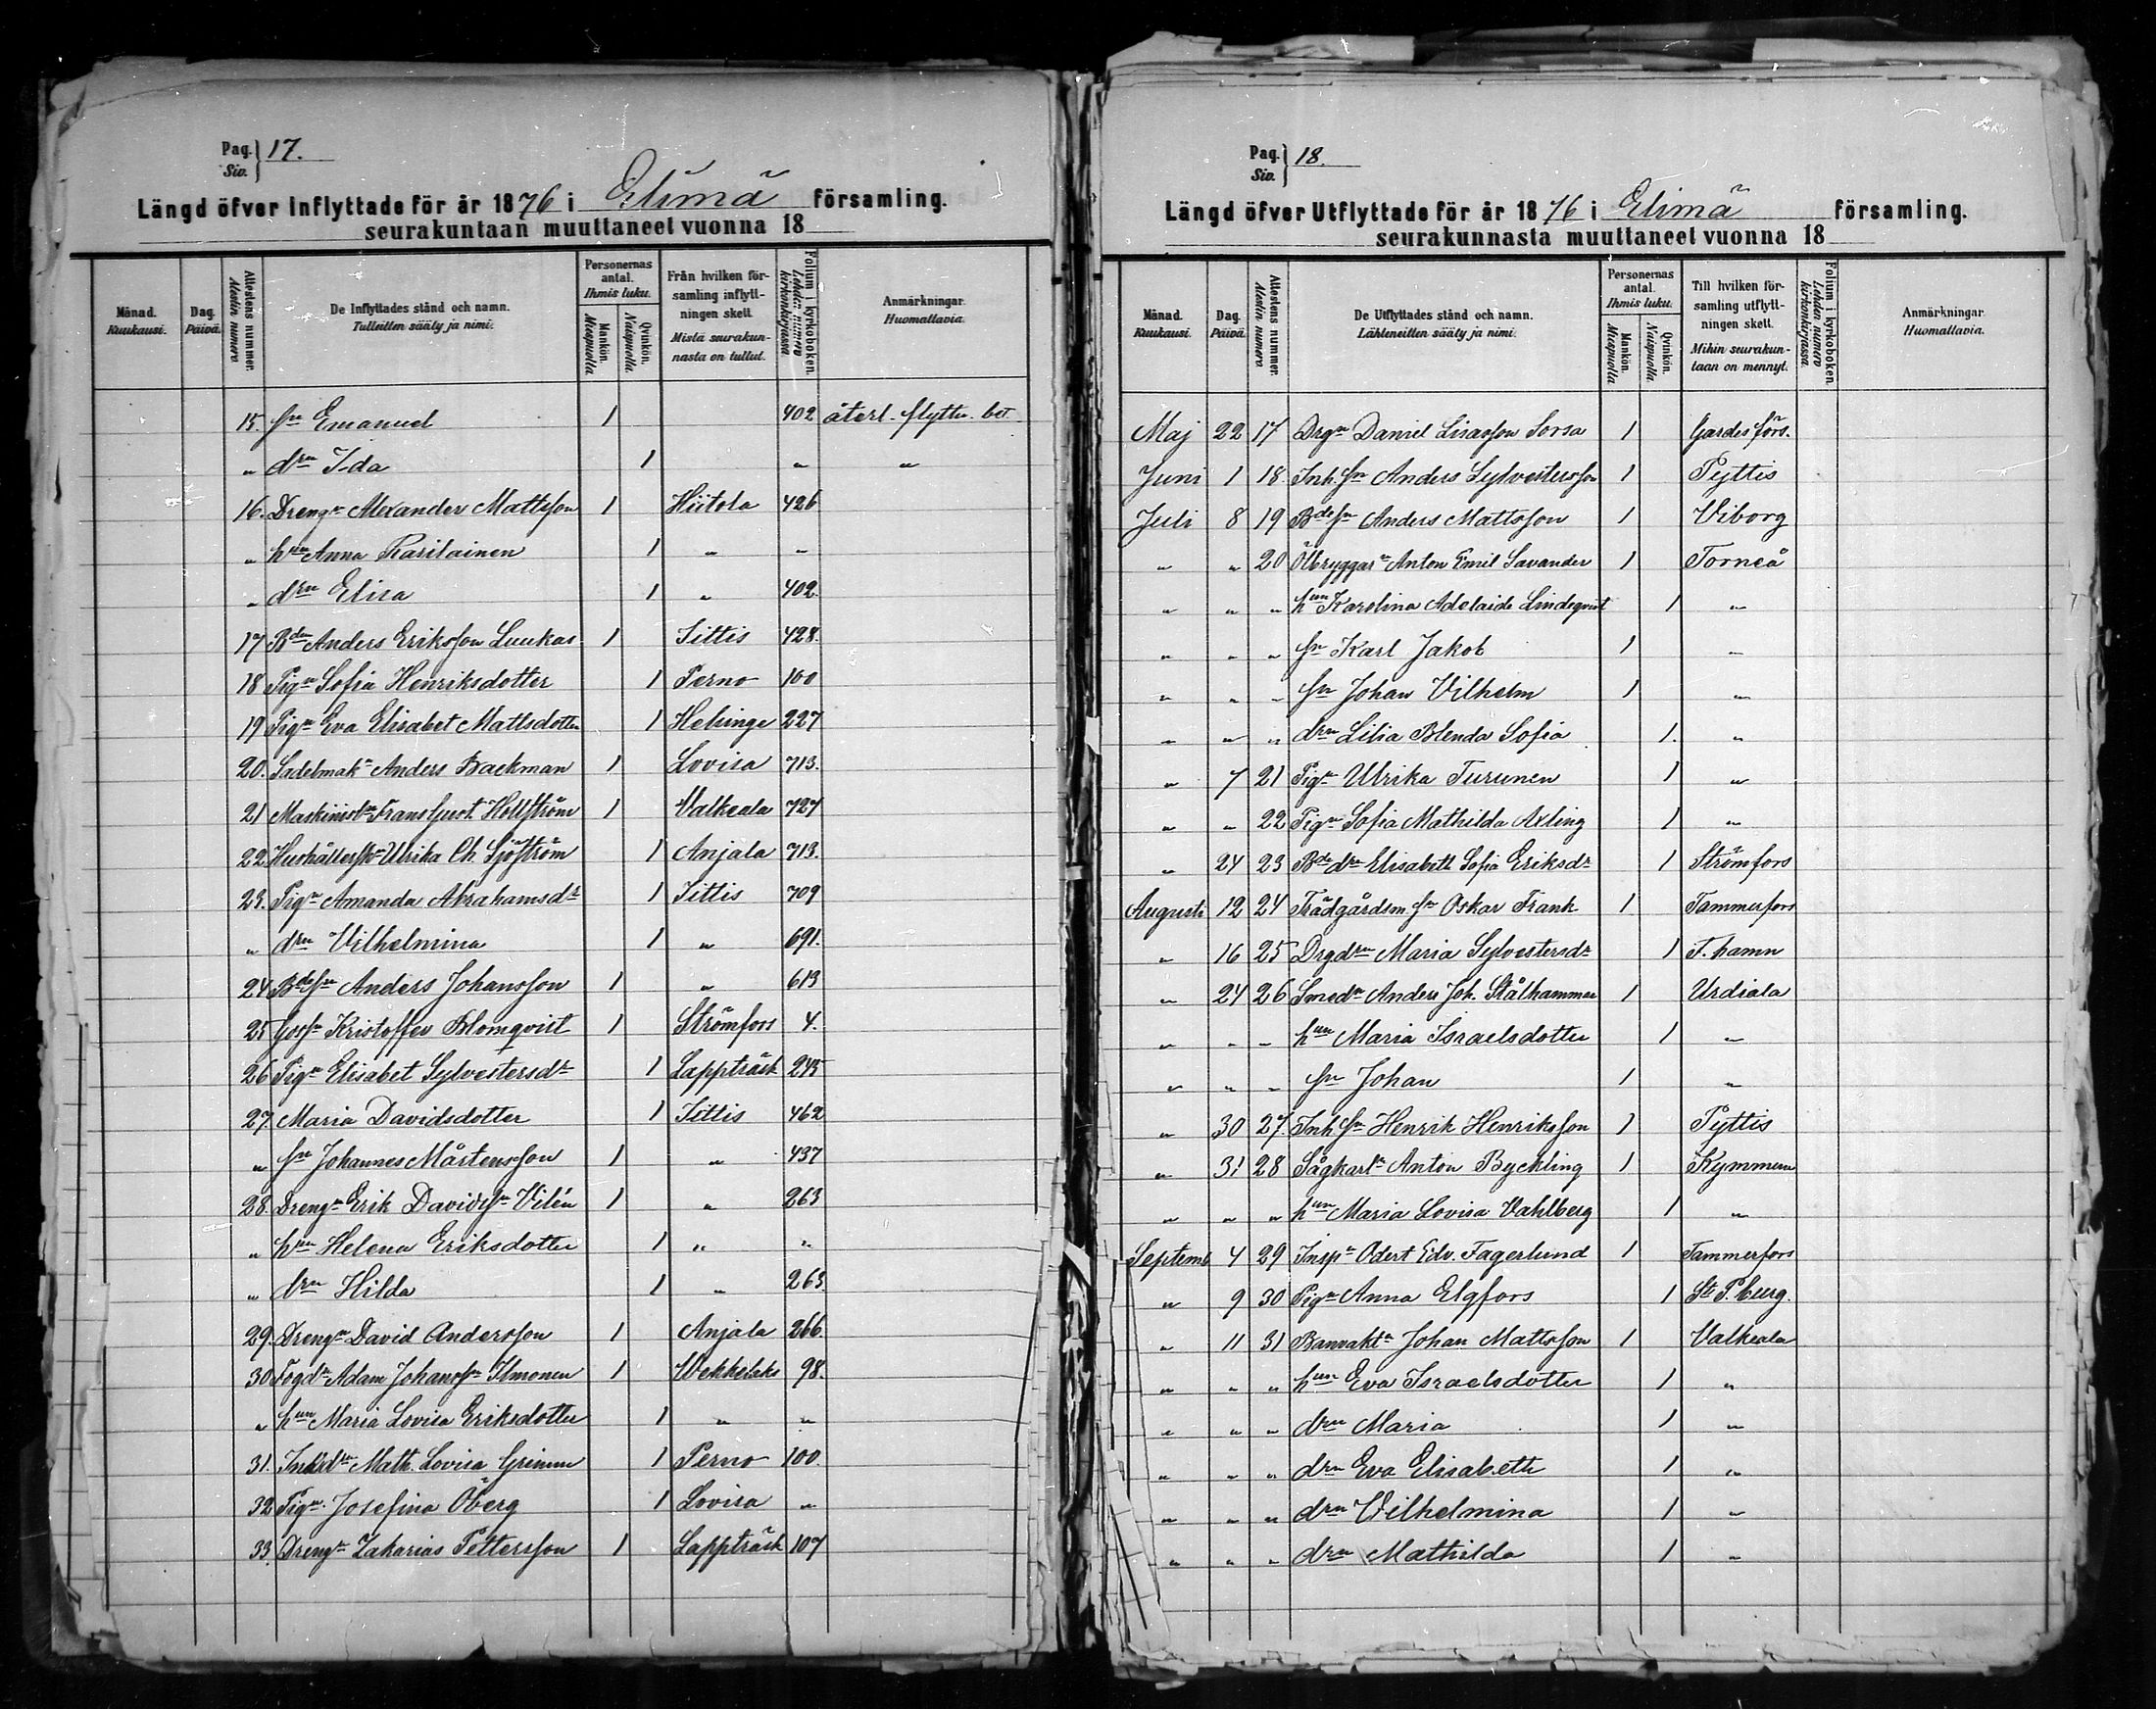 Pag. Siv. } 17.
Längd öfver Inflyttade för år 1876 i Elimä församling.
seurakuntaan muuttaneet vuonna 18
Månad. Kuukausi.
Dag. Päivä.
Attestens nummer. Atestin numero
De Inflyttades stånd och namn. Tulleitten sääty ja nimi.
Personernas antal. Ihmis luku.
Mankön. Miespuolia
Qvinkön. Naispuolia.
Från hvilken församling inflyttningen skett. Mistä seurakunnasta on tullut.
Folium i kyrkoboken. Lehden numero kirkonkirjassa.
Anmärkningar. Huomattavia.
15. sn Emanuel 1 402 återl. flyttn. bet.
„ drn Ida 1 „ „
16. Drengn Alexander Mattsson 1 Hiitola 426
„ hun Anna Karilainen 1 „ „
„ drn Elisa 1 „ 402.
17 Bden Anders Eriksson Luukas 1 Iittis 428.
18 Pign Sofia Henriksdotter 1 Perno 100
19 Pign Eva Elisabet Mattsdotter 1 Helsinge 227
20. Sadelmakn Anders Backman 1 Lovisa 713.
21 Maskinistn Frans Gust. Hollström 1 Valkeala 727
22. Hushållerskn Ulrika Ch. Sjöström 1 Anjala 713.
23. Pign Amanda Abrahamsdr 1 Iittis 709
„ drn Vilhelmina 1 „ 691.
24 Bdesn Anders Johansson 1 „ 613
25 Kristoffer Blomqvist 1 Strömfors 4.
26 Pign Elisabet Sylvestersdr 1 Lappträsk 245
27. Maria Davidsdotter 1 Iittis 462
„ sn Johannes Mårtensson 1 „ 437
28. Drengn Erik Davidssn Vilén 1 „ 263
„ hun Helena Eriksdotter 1 „ „
„ drn Hilda 1 „ 263.
29. Drengn David Andersson 1 Anjala 266.
30. Fogdn Adam Johanssn Ilmonen 1 Wekkelaks 98.
„ hun Maria Lovisa Eriksdotter 1 „ „
31. Math. Lovisa Grimm 1 Perno 100.
32 Pign Josefina Öberg 1 Lovisa „
33. Drengn Zakarias Pettersson 1 Lappträsk 107
Pag. Siv. } 18.
Längd öfver Utflyttade för år 1876 i Elimä församling.
seurakunnasta muuttaneet vuonna 18
Månad. Kuukausi.
Dag. Päivä.
Attestens nummer. Atestin numero
De Utflyttades stånd och namn. Lähteneitten sääty ja nimi.
Personernas antal. Ihmis luku.
Mankön. Miespuolia
Qvinkön. Naispuolia.
Till hvilken församling utflyttningen skett. Mihin seurakuntaan on mennyt.
Folium i kyrkoboken. Lehden numero kirkonkirjassa.
Anmärkningar. Huomattavia.
Maj 22 17 Drgn Daniel Sorsa 1 Gardes förs.
Juni 1 18. Inh. sn Anders Sylvestersson 1 Pyttis
Juli 8 19 Bdesn Anders Mattsson 1 Viborg
„ „ 20 Ölbryggarn Anton Emil Savander 1 Torneå
„ „ „ hun Karolina Adelaide Lindeqvist 1 „
„ „ „ sn Karl Jakob 1 „
„ „ „ sn Johan Vilhelm 1 „
„ „ „ drn Lilia Blenda Sofia 1. „
„ 7 21 Pign Ulrika Turunen 1 „
„ „ 22 Pign Sofia Mathilda Axling 1 „
„ 24 23 Bde drn Elisabeth Sofia Eriksdr 1 Strömfors
Augusti 12 24 Trädgårdsm. sn Oskar Frank 1 Tammerfors
„ 16 25 Drgdrn Maria Sylvestersdr 1 F. hamn
„ 24 26 Smedn Anders Joh. Stålhammar 1 Urdiala
„ „ „ hun Maria Israelsdotter 1 „
„ „ „ sn Johan 1 „
„ 30 27. Inh. sn Henrik Henriksson 1 Pyttis
„ 31 28 Sågkarln Anton Byckling 1 Kymmene
„ „ „ hun Maria Lovisa Vahlberg 1 „
Septemb 4 29 Inspn Odert Edv. Fagerlund 1 Tammerfors
„ 9 30 Pign Anna Elgfors 1 St. P.burg.
„ 11 31 Banvaktn Johan Mattsson 1 Valkeala
„ „ „ hun Eva Israelsdotter 1 „
„ „ „ drn Maria 1 „
„ „ „ drn Eva Elisabeth 1 „
„ „ „ drn Wilhelmina 1 „
„ „ „ drn Mathilda 1 „